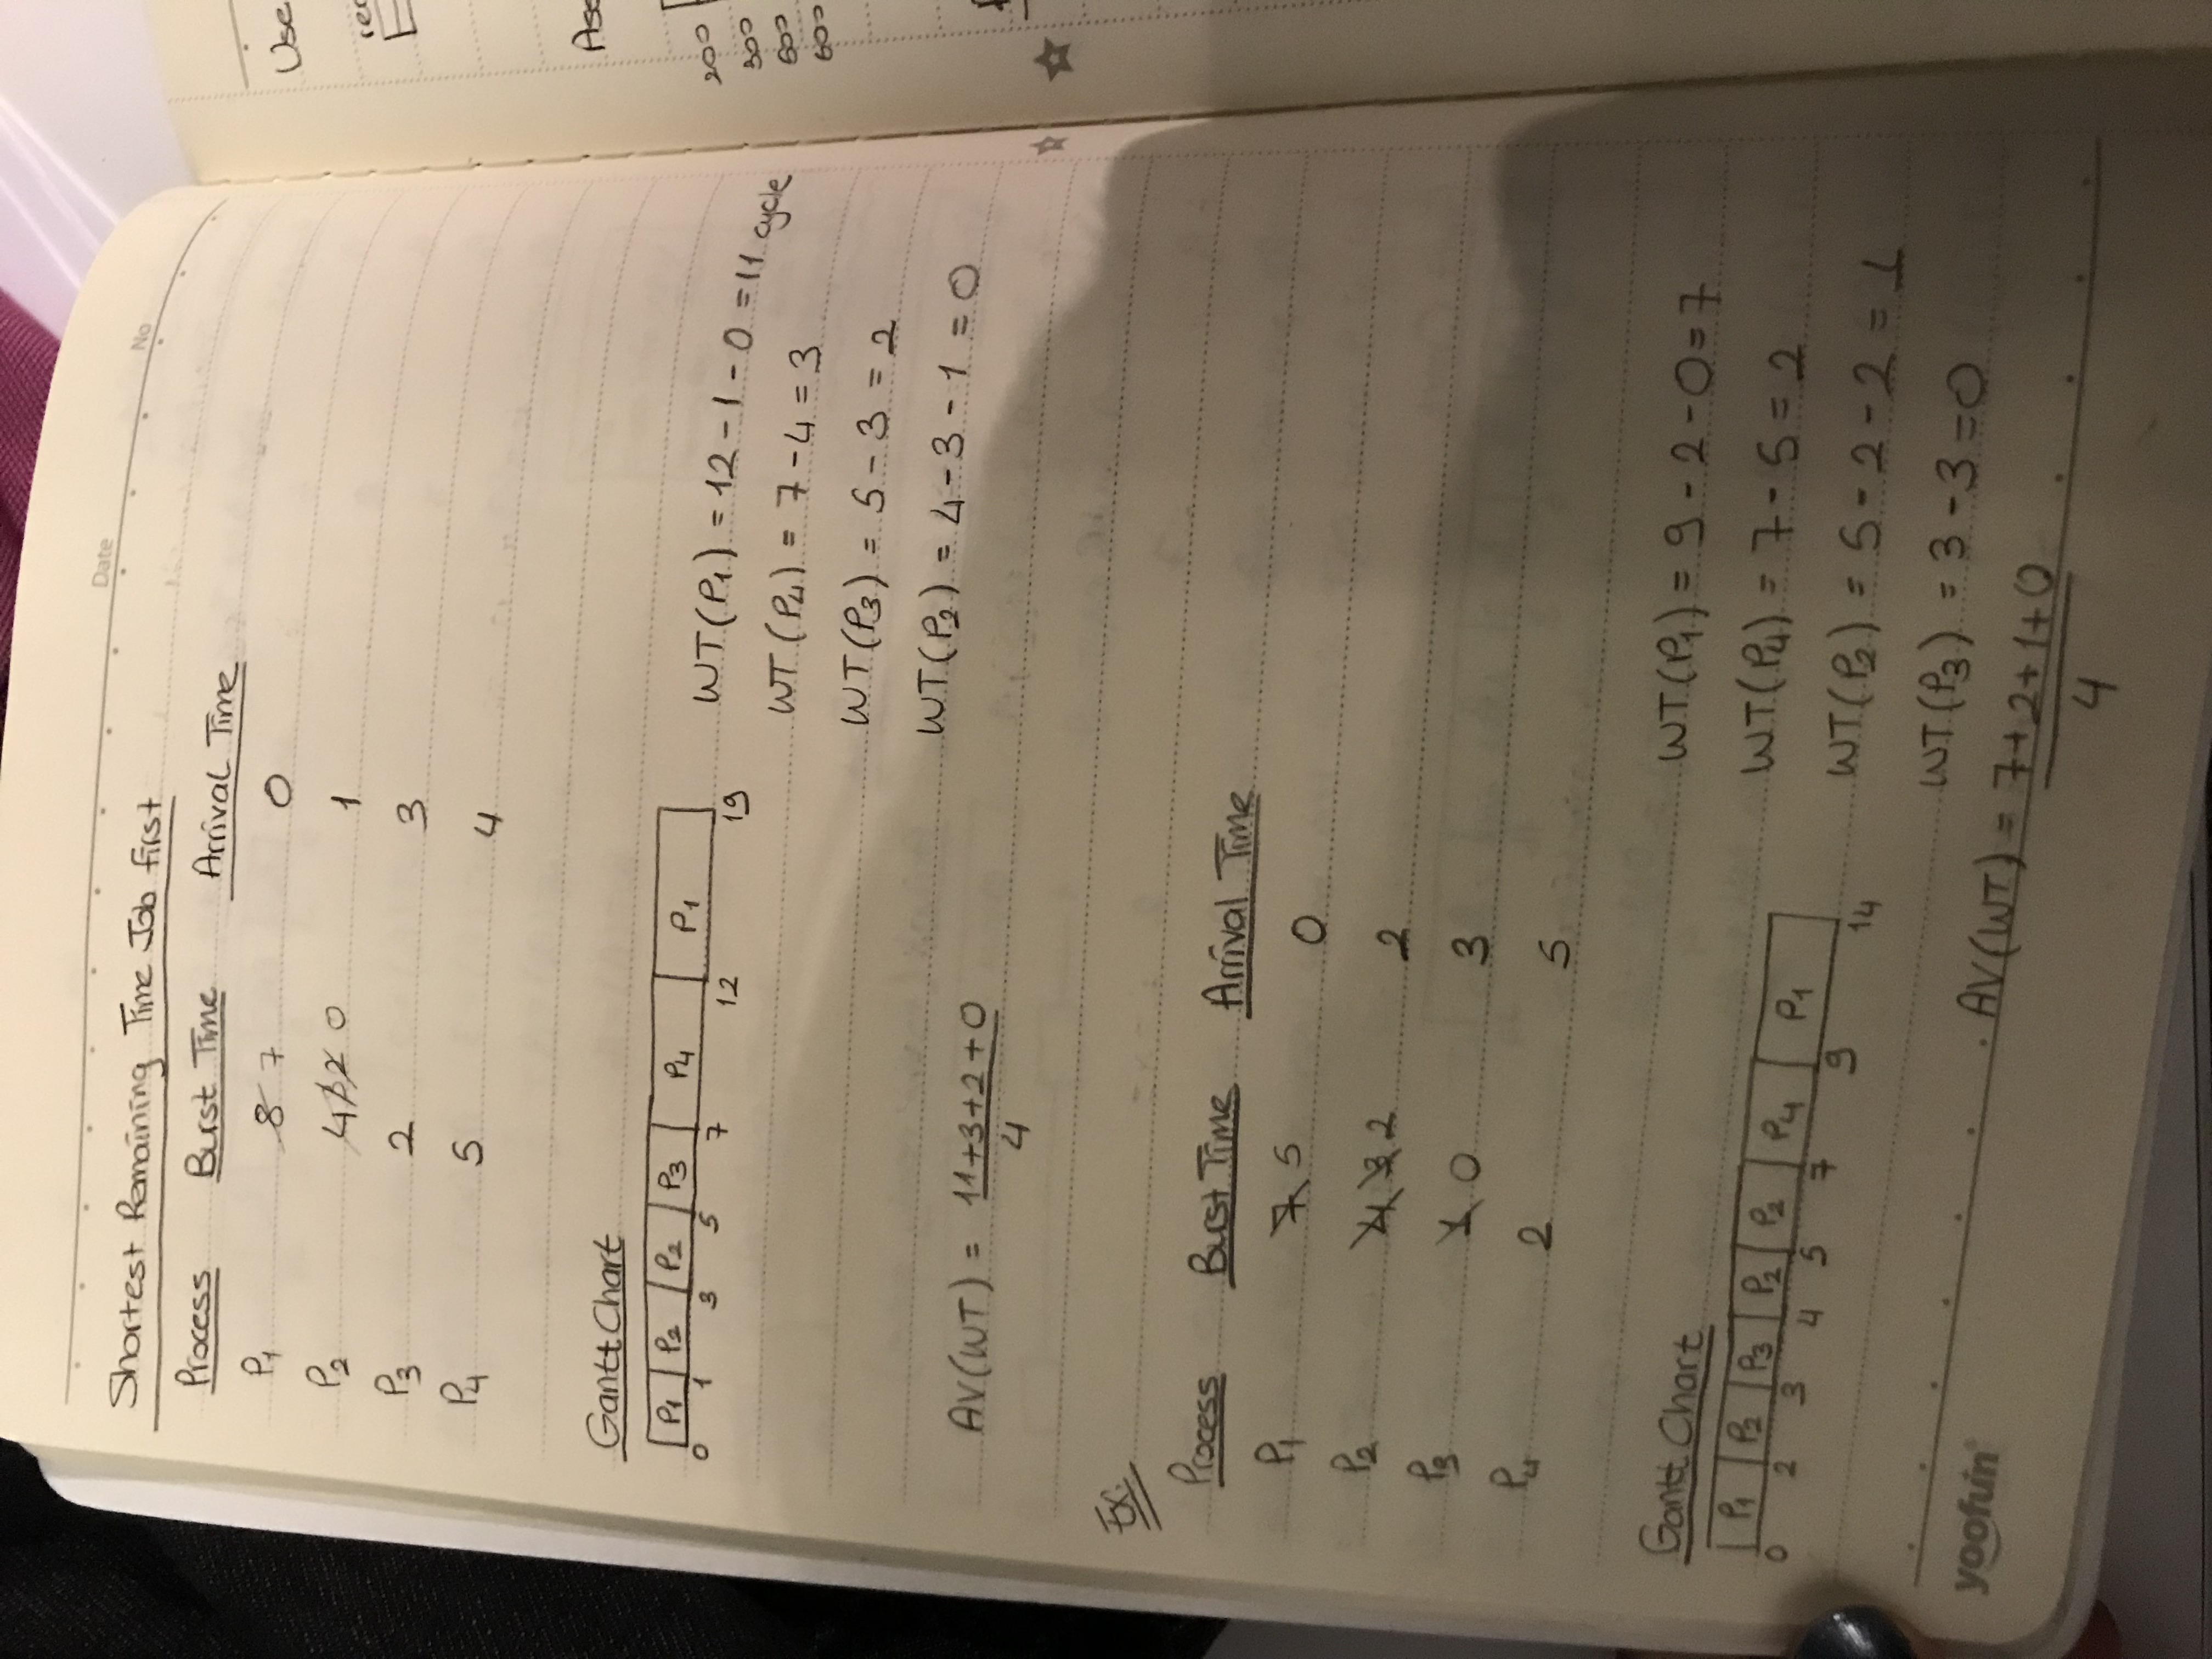 Date
No
Shortest Remaining Time Job first
Process Burst Time Arrival Time
P1 8 7 0
P2 4 3 2 0 1
P3 2 3
P4 5 4
Gantt Chart
P1 P2 P2 P3 P4 P1
0 1 3 5 7 12 19
WT(P1) = 12 - 1 - 0 = 11 cycle
WT(P4) = 7 - 4 = 3
WT(P3) = 5 - 3 = 2
WT(P2) = 4 - 3 - 1 = 0
AV(WT) = 11+3+2+0
4
Ex:
Process Burst Time Arrival Time
P1 7 5 0
P2 4 3 2 2
P3 1 0 3
P4 2 5
Gantt Chart
P1 P2 P3 P2 P2 P4 P1
0 2 3 4 5 7 9 14
WT(P1) = 9 - 2 - 0 = 7
WT(P4) = 7 - 5 = 2
WT(P2) = 5 - 2 - 2 = 1
WT(P3) = 3 - 3 = 0
AV(WT) = 7+2+1+0
4
yoofun
Use
200
300
600
600